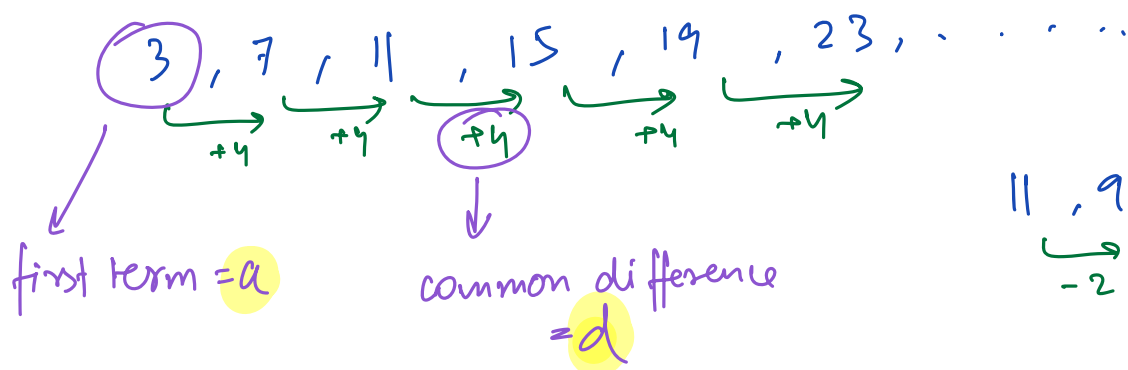 3 , 7 , 11 , 15 , 19 , 23 , . . . .
+4 +4 +4 +4 +4
11 , 9
-2
first term = a
common difference
= d